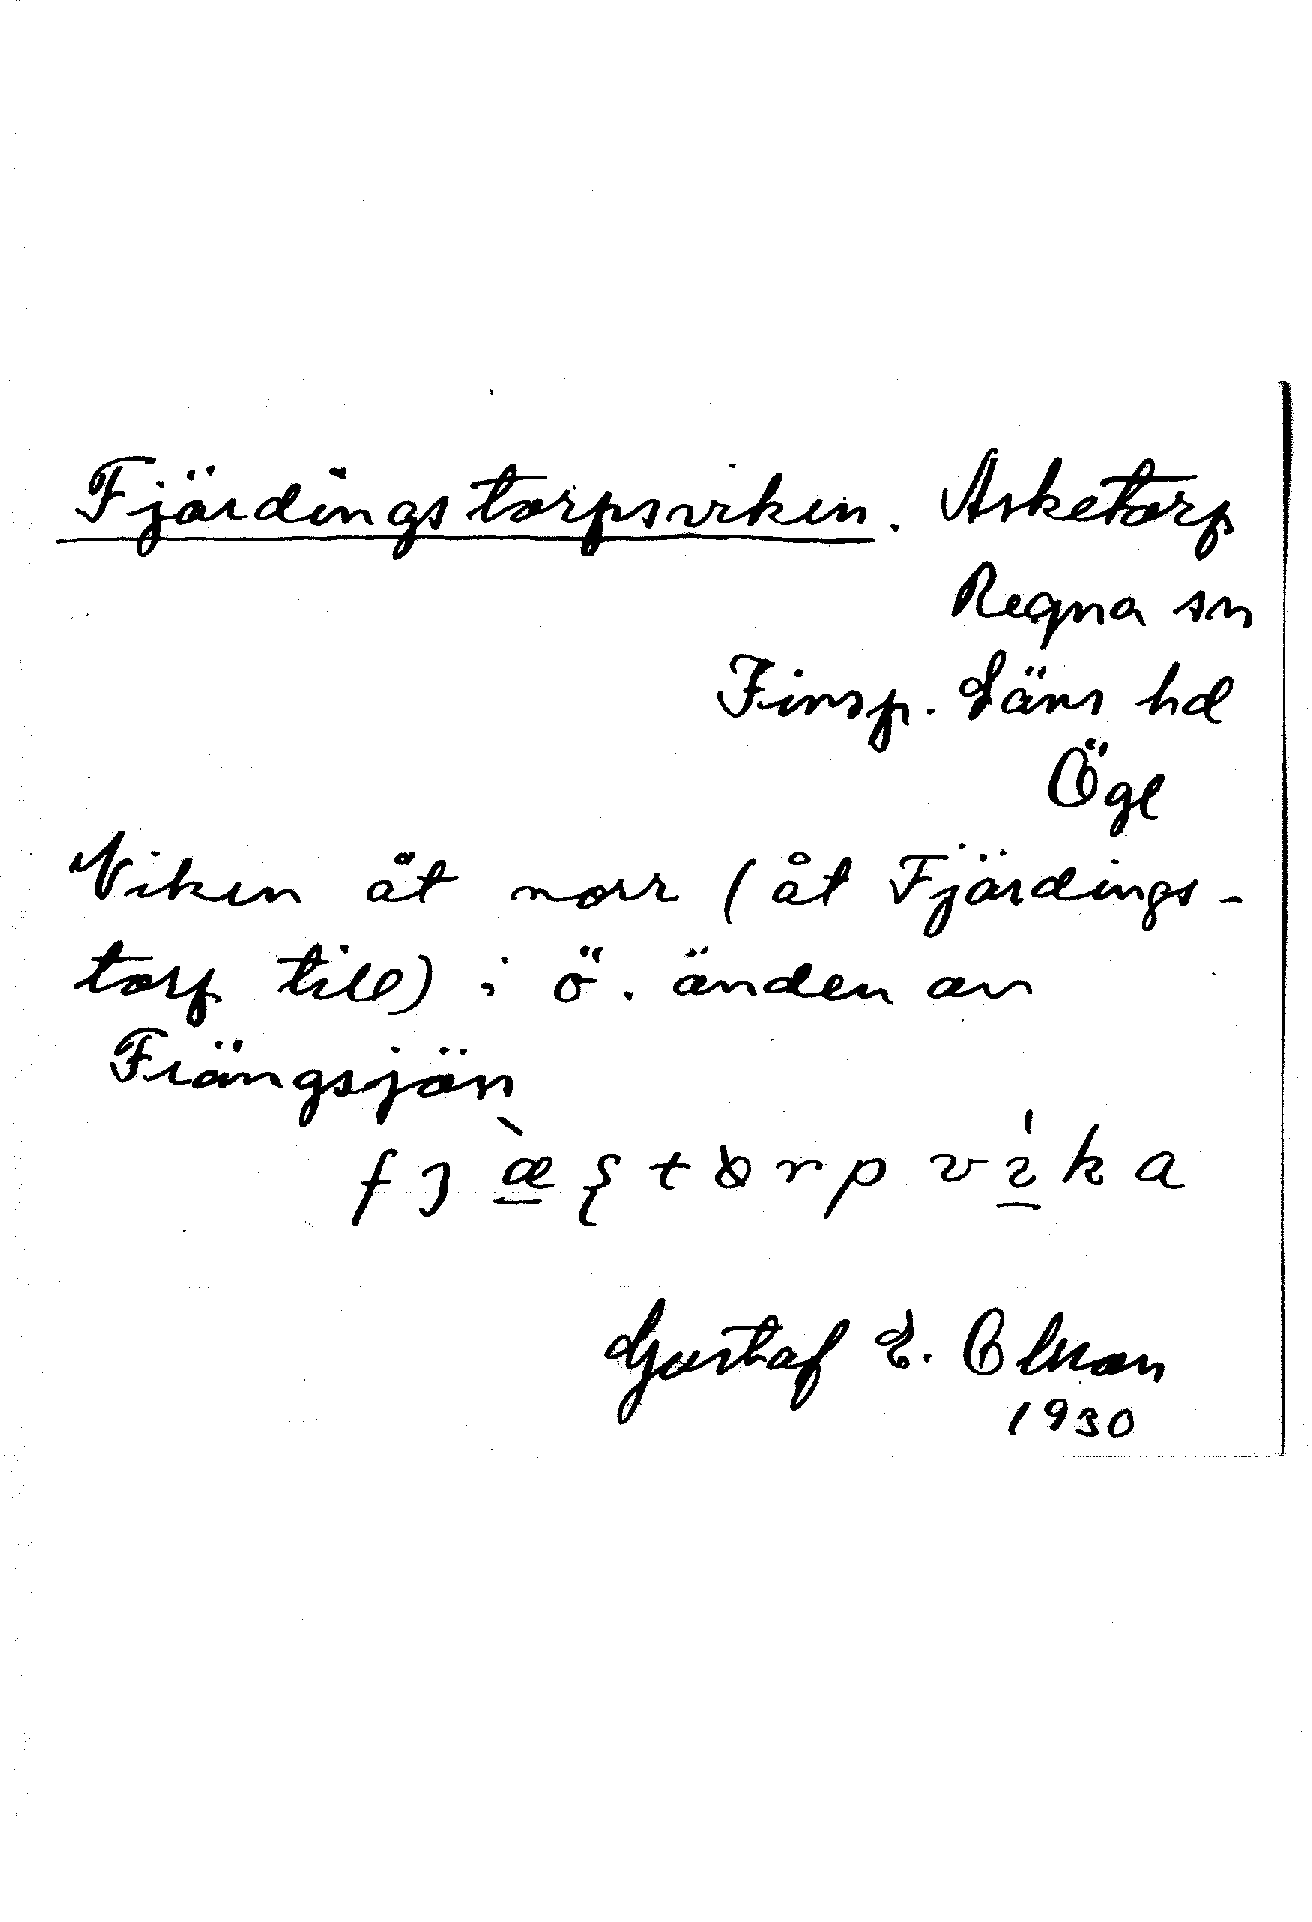 Fjärdingstorpsviken. Asketorp
Regna sn
Finsp. Läns hd
Ögl
Viken åt norr (åt Fjärdings-
torp till) i ö. änden av
Frängsjön
Gustaf E. Olsson
1930